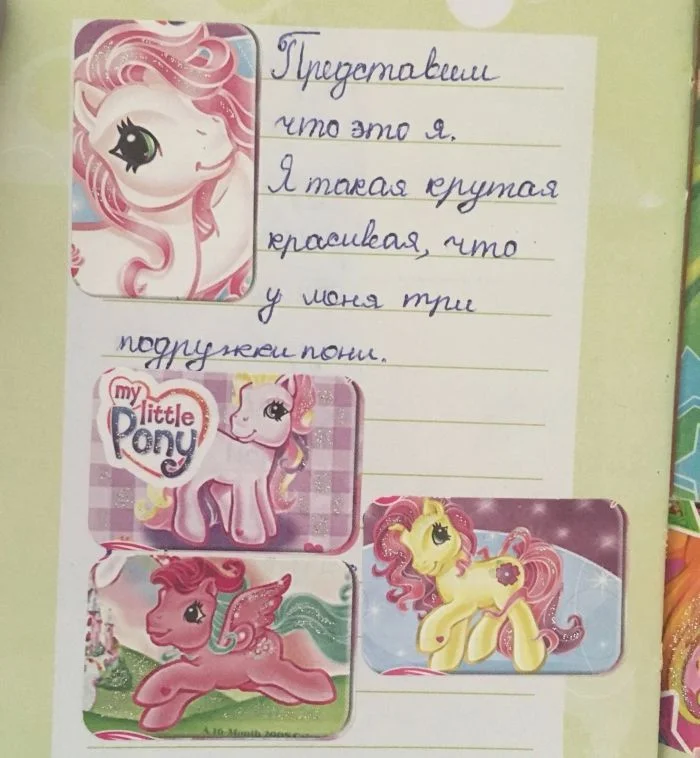 Представим
что это я.
Я такая крутая
красивая, что
у меня три
подружки пони.
my
little
Pony
A 16-Month 2008 C